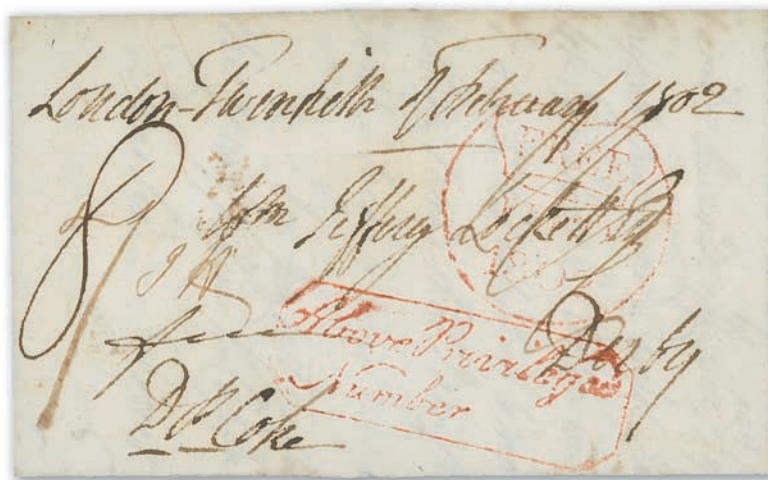 London Twentieth February 1802
FREE
Wm Jeffery Lockett Esq
8
Derby
Above Privilege
Number
Free
DP Coke